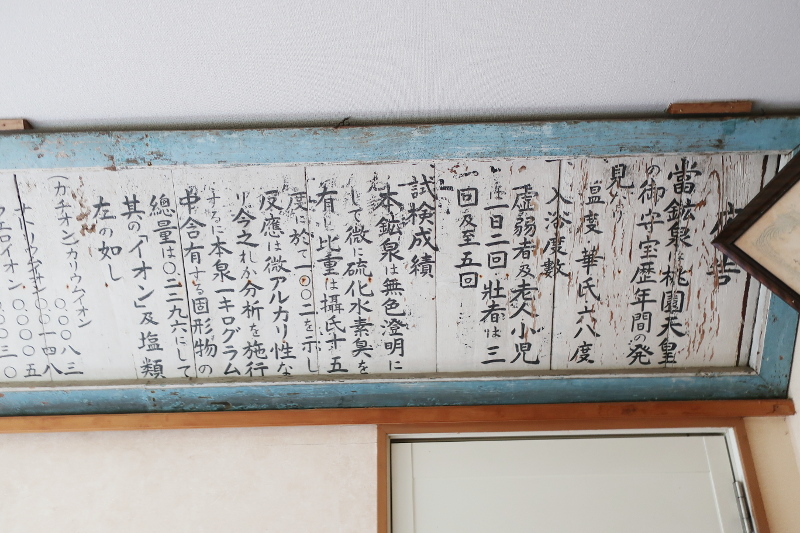 當鉱泉は桃園天皇
の御守宝歴年間の発
見
温度 華氏六八度
入浴度数
虚弱者及老人小児
は一日二回壮者は三
回及至五回
試験成績
本鉱泉は無色澄明に
して微に硫化水素臭を
有し比重は摂氏十五
度に於て一・〇〇二を示し
反應は微アルカリ性な
り今之れが分析を施行
するに本泉一キログラム
中含有する固形物の
總量は〇・二二九六にして
其の「イオン」及塩類
左の如し
(カチオン)カリウムイオン 〇〇〇八三